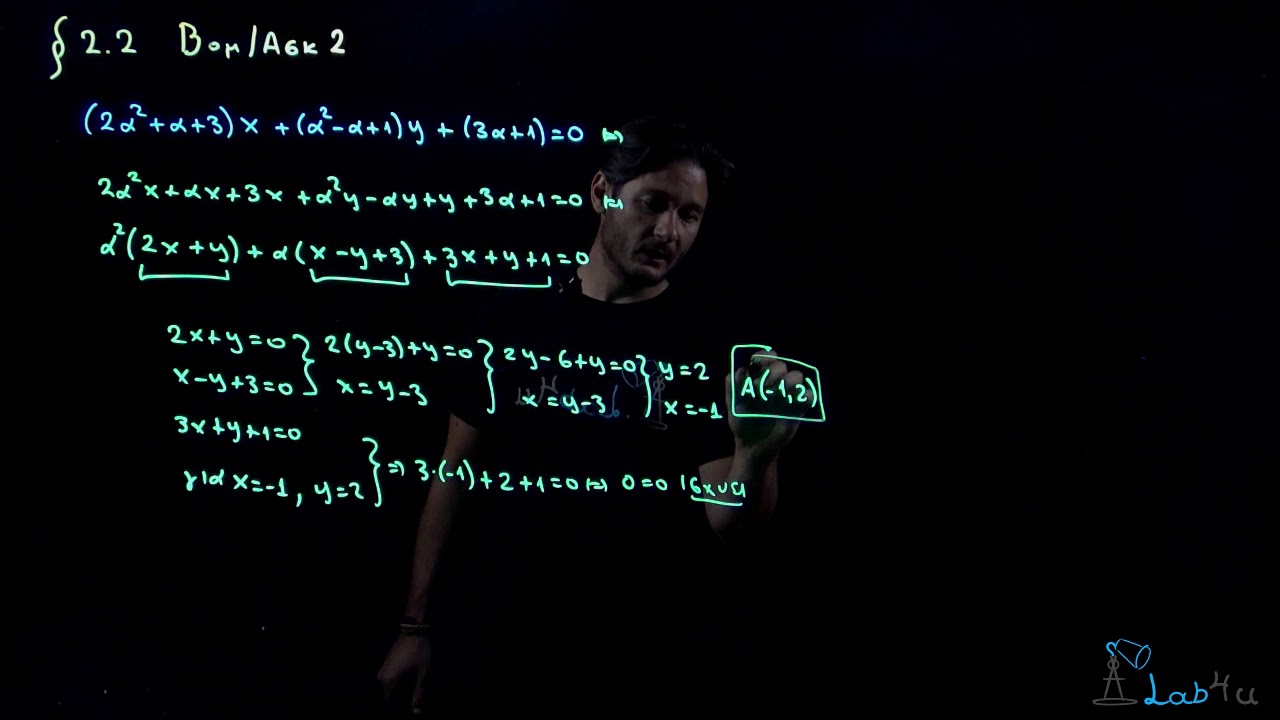 § 2.2 Βομ/Ασκ 2
(2α²+α+3)x + (α²-α+1)y + (3α+1)=0 ⇔
2α²x+αx+3x+α²y-αy+y+3α+1=0 ⇔
α²(2x+y)+α(x-y+3)+3x+y+1=0
2x+y=0 } 2(y-3)+y=0 } 2y-6+y=0 } y=2
x-y+3=0 } x=y-3 } x=y-3 } x=-1
A(-1,2)
3x+y+1=0
για x=-1, y=2 } ⇒ 3·(-1)+2+1=0 ⇔ 0=0 ισχύει
Lab4u